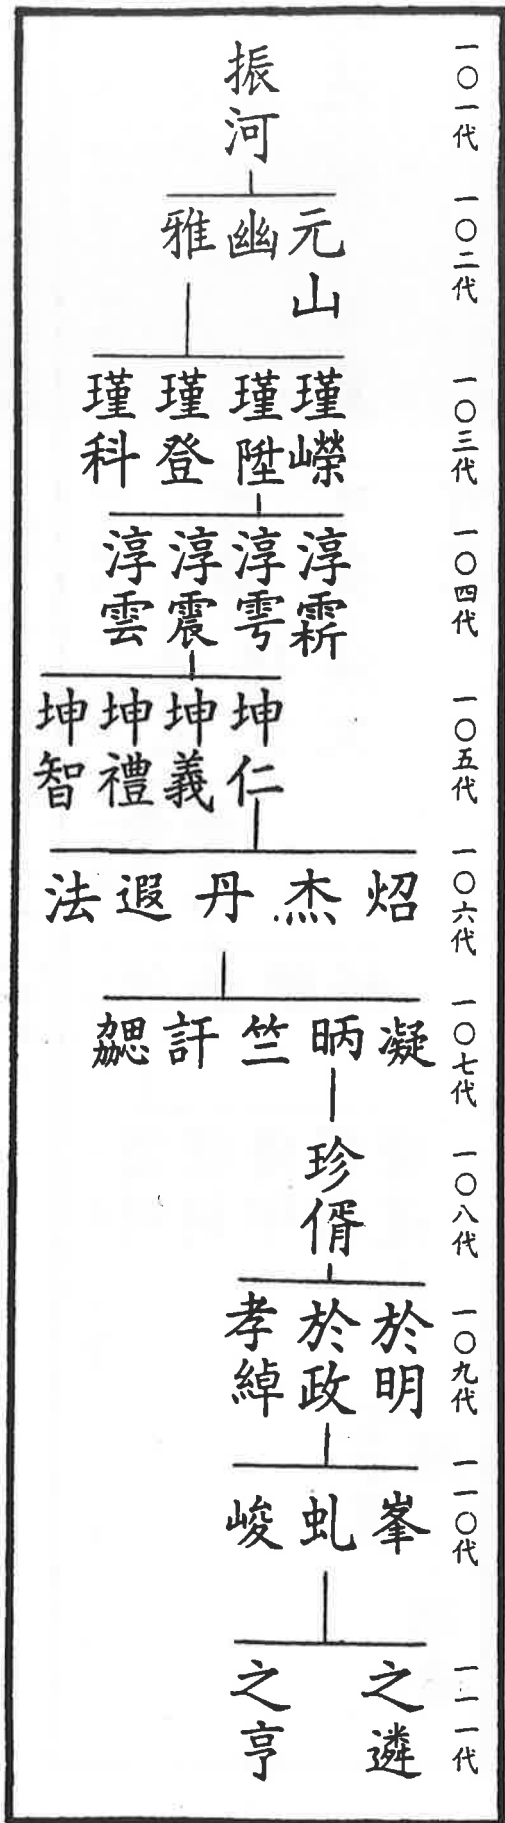 一〇一代
振河
一〇二代
元山
幽
雅
一〇三代
瑾嶸
瑾陞
瑾登
瑾科
一〇四代
淳霖
淳雩
淳震
淳雲
一〇五代
坤仁
坤義
坤禮
坤智
一〇六代
炤
杰
丹
遐
法
一〇七代
凝
昞
竺
訐
一〇八代
珍偦
一〇九代
於明
於政
孝綽
一一〇代
峯
虬
峻
一一一代
之遴
之亨